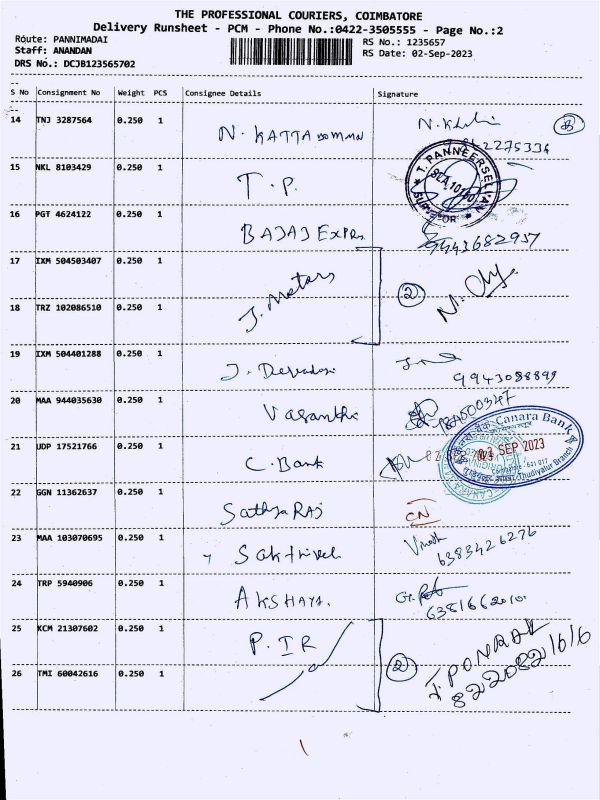 THE PROFESSIONAL COURIERS, COIMBATORE
Delivery Runsheet - PCM - Phone No.:0422-3505555 - Page No.:2
Route: PANNIMADAI
RS No.: 1235657
Staff: ANANDAN
RS Date: 02-Sep-2023
DRS No.: DCJB123565702
S No Consignment No Weight PCS Consignee Details Signature
14 TNJ 3287564 0.250 1 N. KATTABOMMAN
15 NKL 8103429 0.250 1 T.P. T. PANNEERSELVAM SURVEYOR
16 PGT 4624122 0.250 1 BAJAJ EXPRS 9443682957
17 IXM 504503407 0.250 1 J. Motors 2
18 TRZ 102086510 0.250 1
19 IXM 504401288 0.250 1 J. Devadoss 9943088899
20 MAA 944035630 0.250 1 Vasanthi
21 UDP 17521766 0.250 1 C. Bank Canara Bank 02 SEP 2023 Thudiyalur Branch
22 GGN 11362637 0.250 1 Sathya RAJ CN
23 MAA 103070695 0.250 1 Sakthivel Vinoth 6383426276
24 TRP 5940906 0.250 1 AKSHAYA.
25 KCM 21307602 0.250 1 P. IR 2 J. PONRAJ
26 TMI 60042616 0.250 1 8220821616